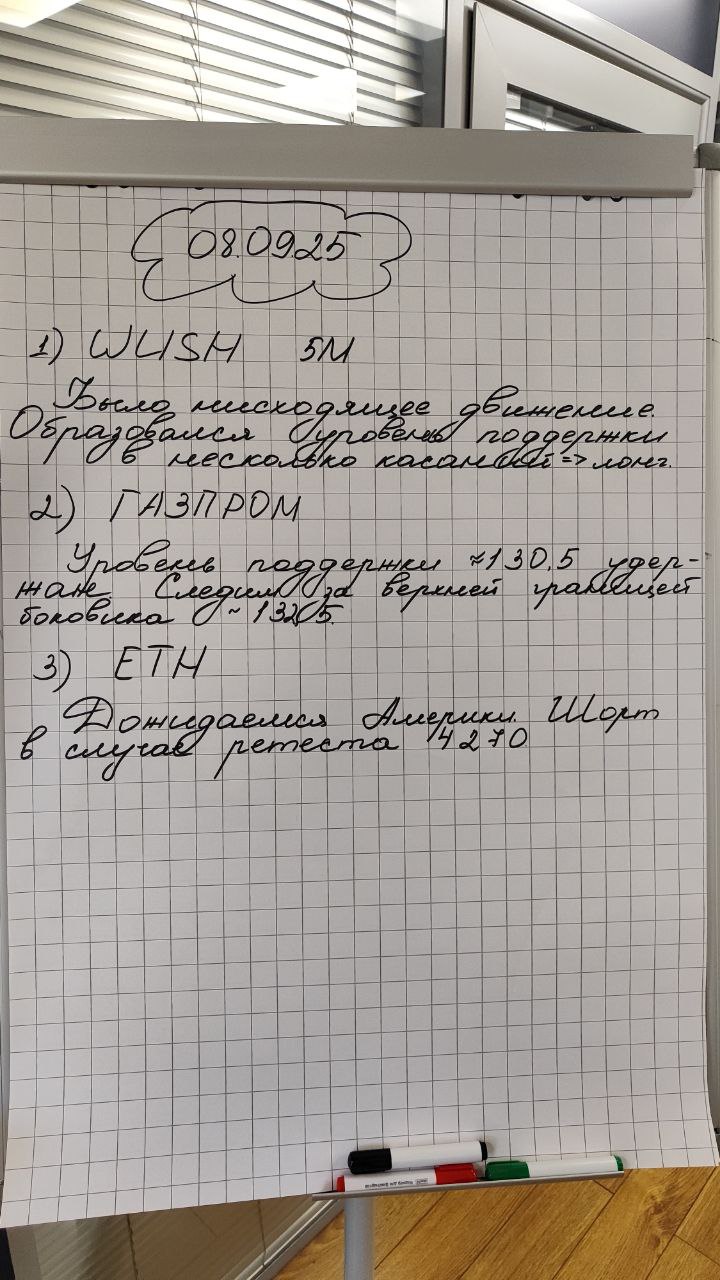 08.09.25
1) WUSH 5М
Было нисходящее движение.
Образовался уровень поддержки
в несколько касаний => лонг.
2) ГАЗПРОМ
Уровень поддержки ≈130,5 удер-
жан. Следим за верхней границей
боковика ~ 132,5.
3) ETH
Дожидаемся Америки. Шорт
в случае ретеста 4270